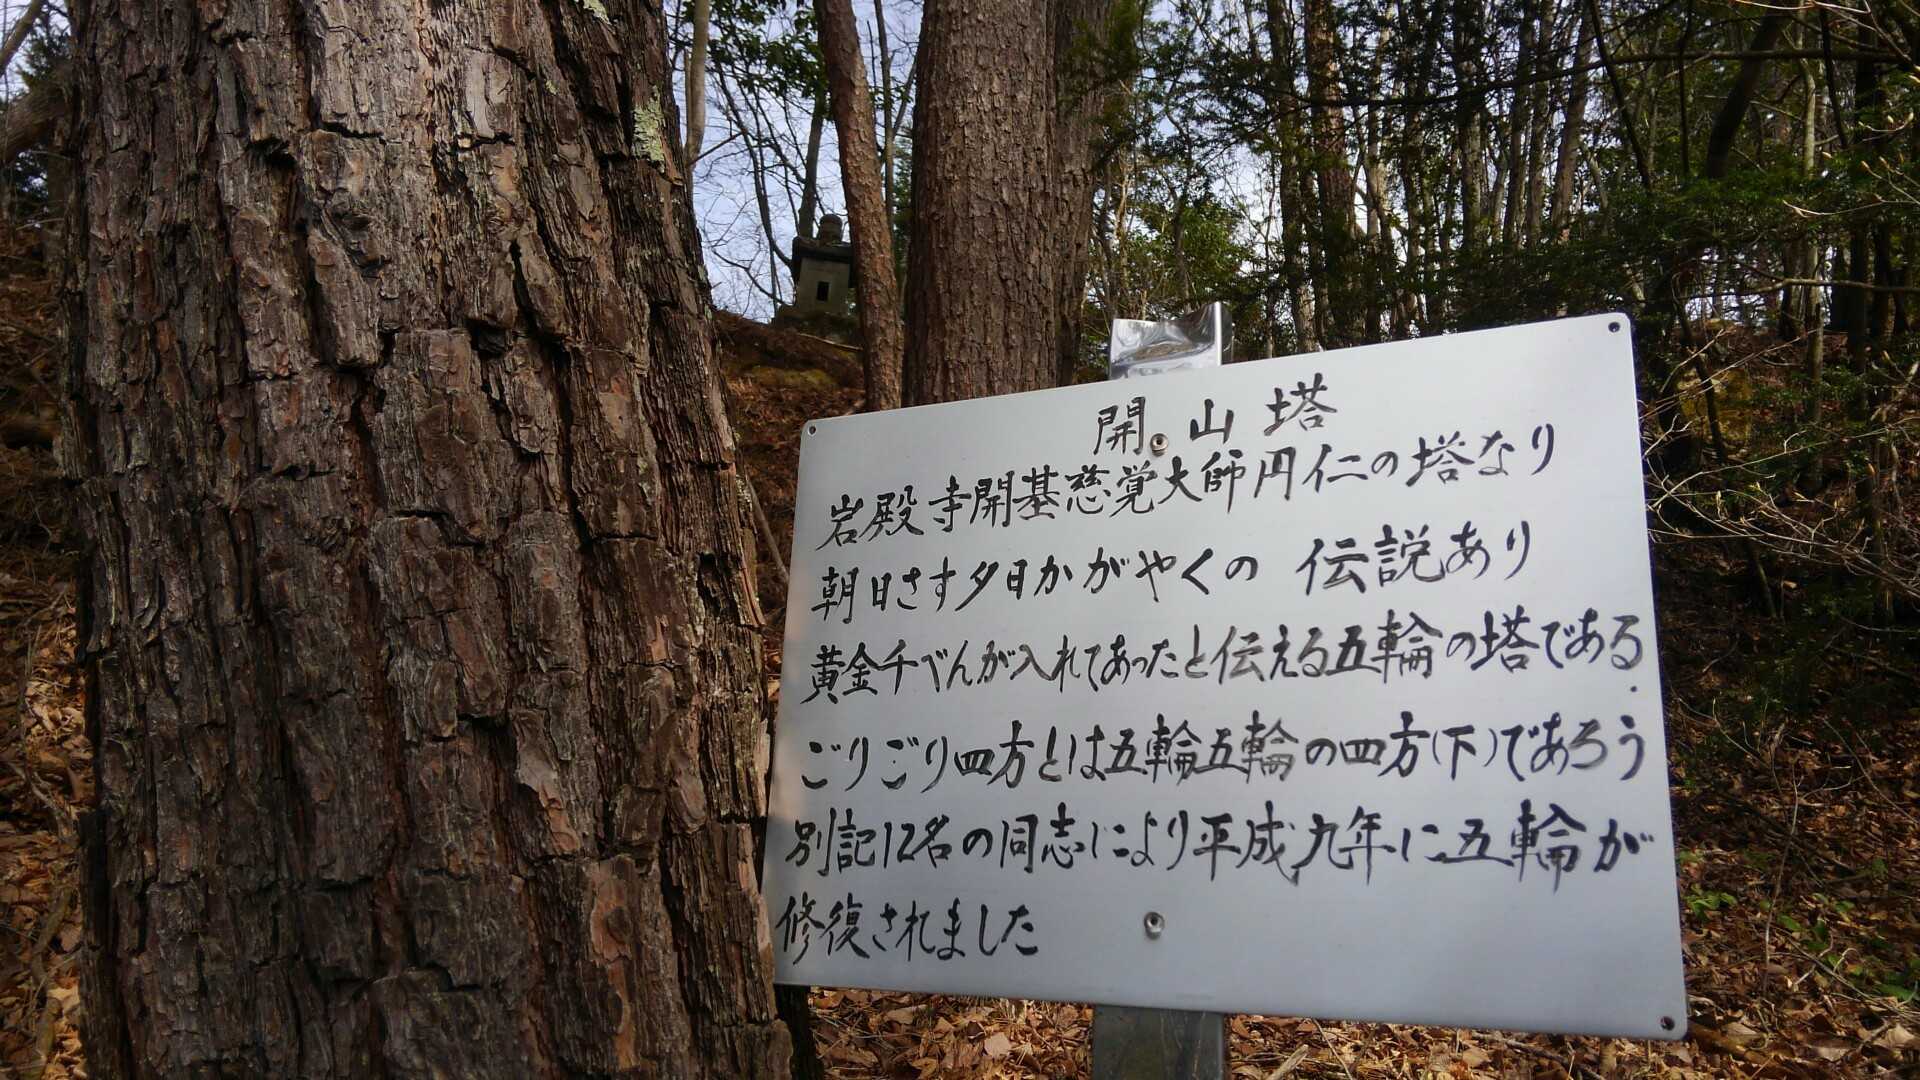 開山塔
岩殿寺開基慈覚大師円仁の塔なり
朝日さす夕日かがやくの 伝説あり
黄金千べんが入れてあったと伝える五輪の塔である.
ごりごり四方とは五輪五輪の四方(下)であろう
別記12名の同志により平成九年に五輪が
修復されました